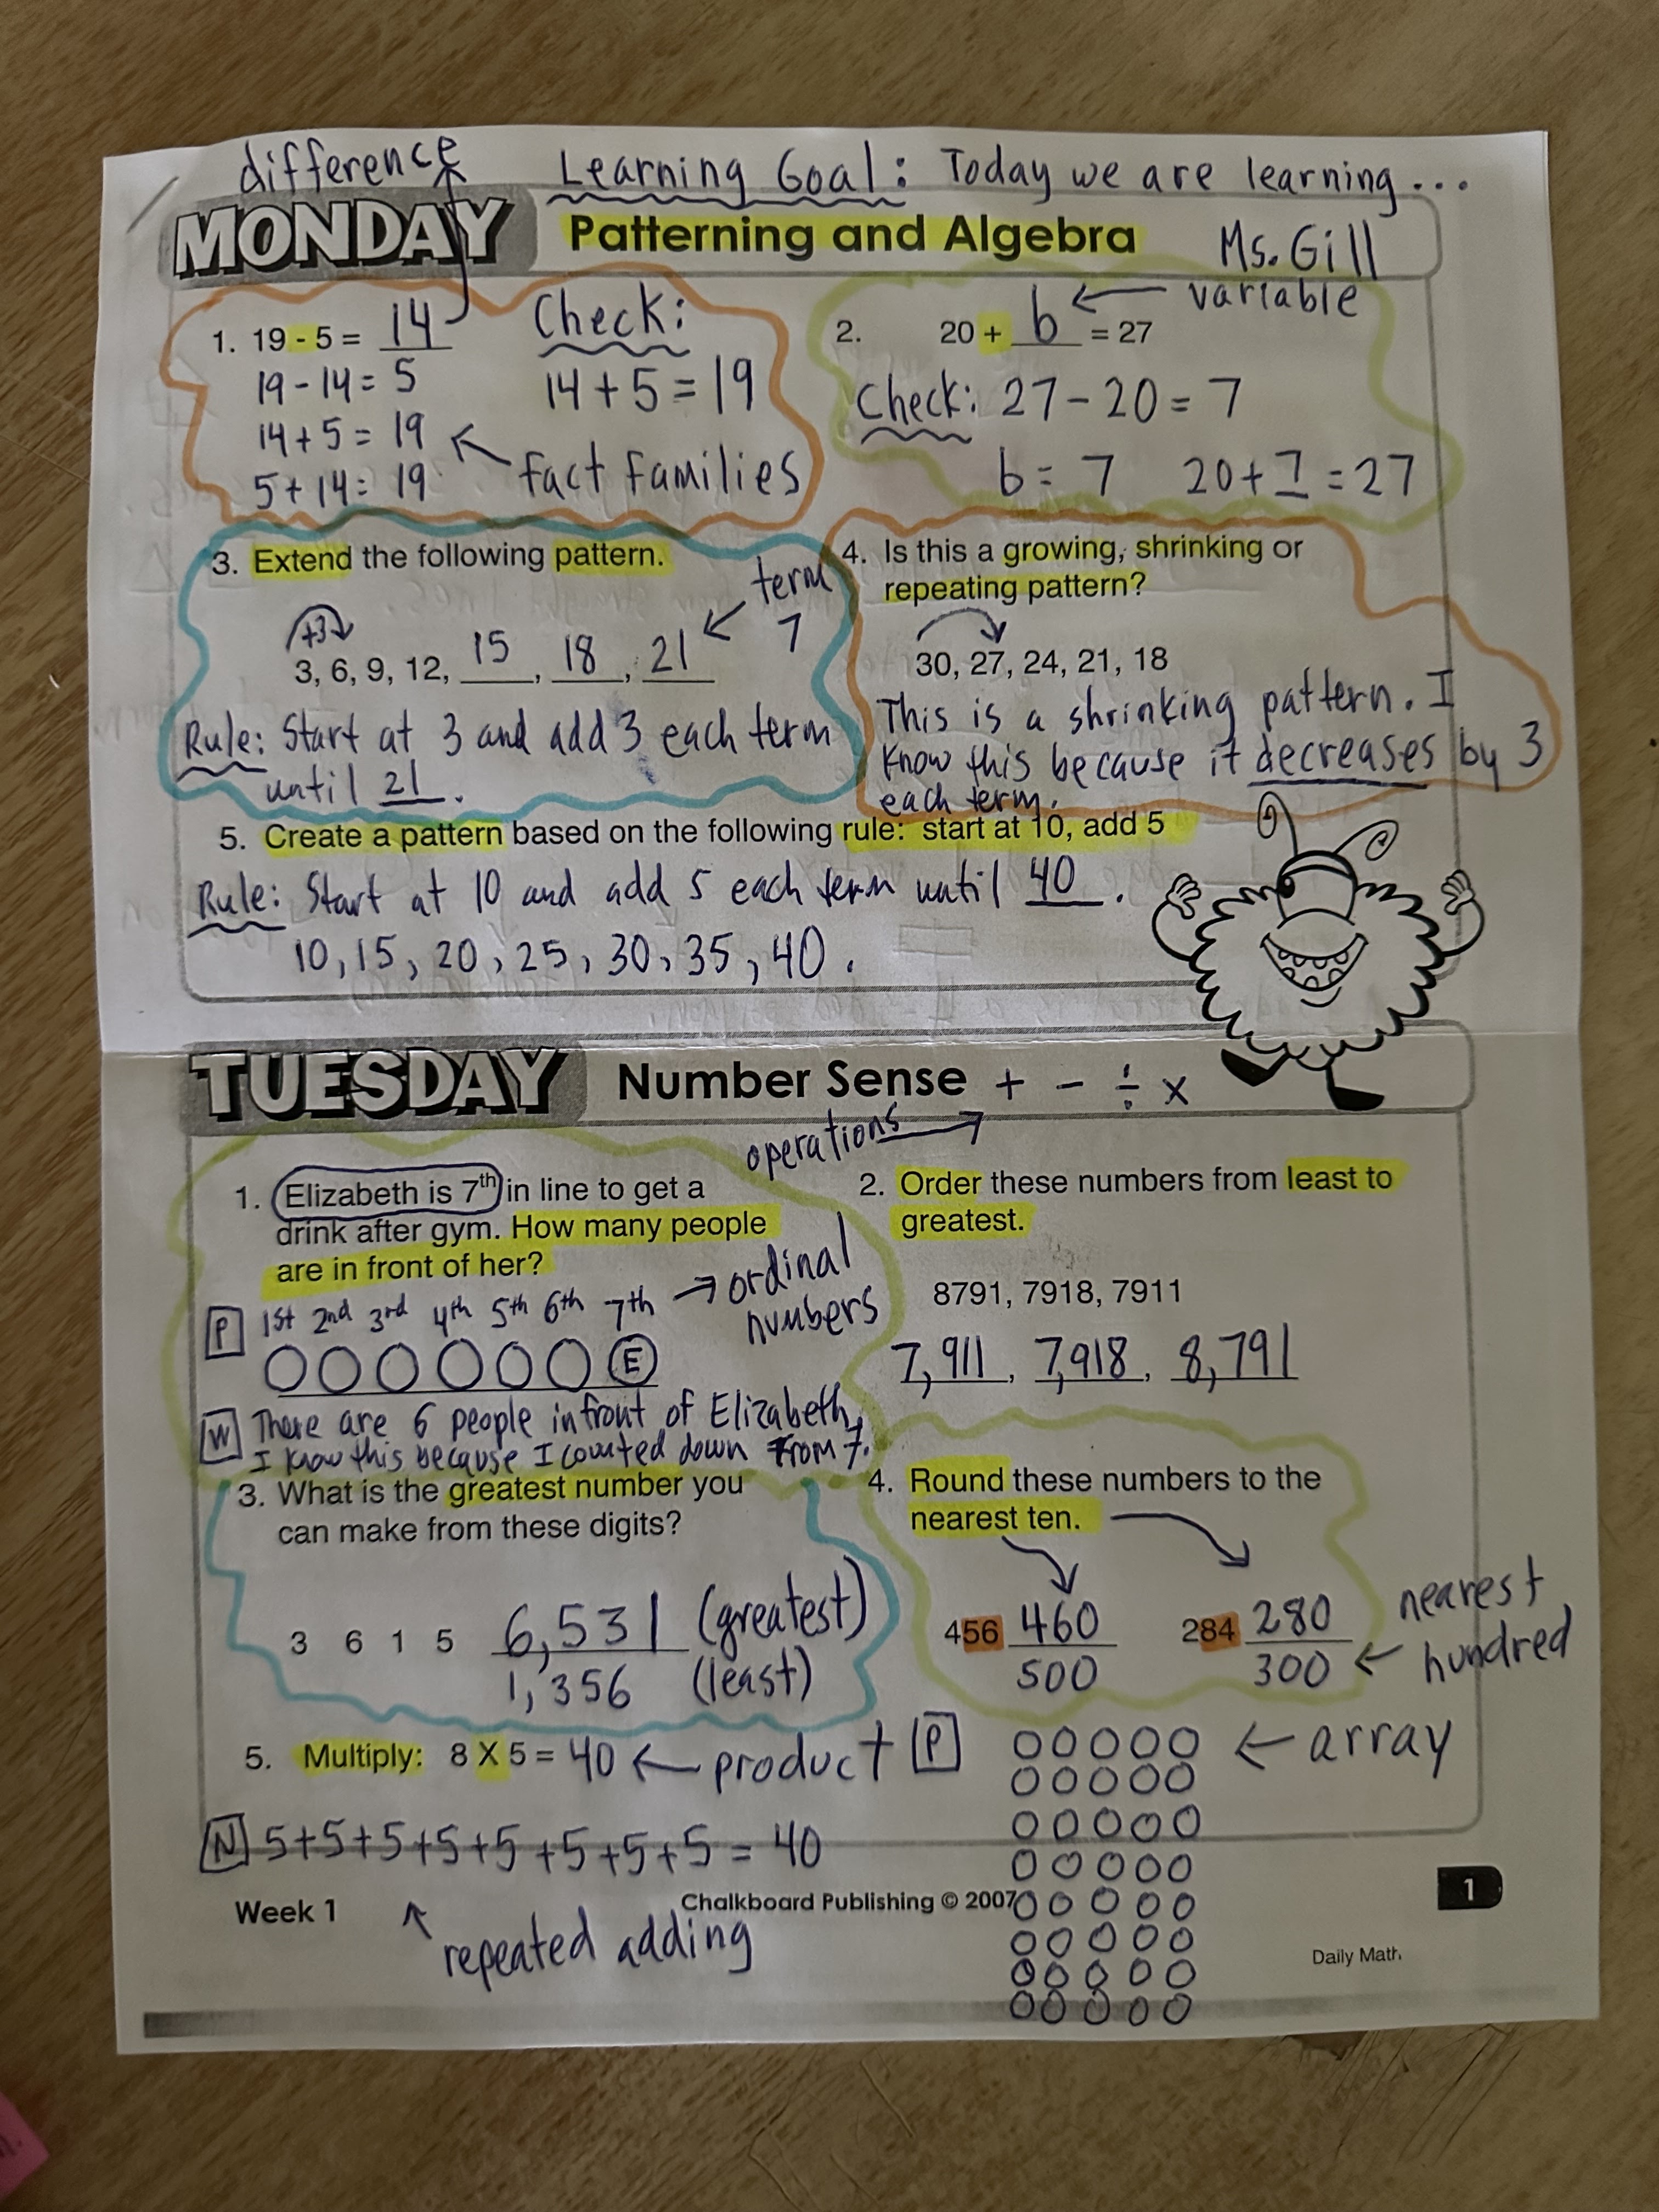 difference
Learning Goal: Today we are learning...
MONDAY Patterning and Algebra Ms. Gill
1. 19 - 5 = 14
19 - 14 = 5
14 + 5 = 19
5 + 14 = 19
Check:
14 + 5 = 19
fact families
2. 20 + b = 27
variable
Check: 27 - 20 = 7
b = 7 20 + 7 = 27
3. Extend the following pattern.
+3
3, 6, 9, 12, 15, 18, 21
term
7
Rule: Start at 3 and add 3 each term
until 21.
4. Is this a growing, shrinking or
repeating pattern?
30, 27, 24, 21, 18
This is a shrinking pattern. I
know this because it decreases by 3
each term.
5. Create a pattern based on the following rule: start at 10, add 5
Rule: Start at 10 and add 5 each term until 40.
10, 15, 20, 25, 30, 35, 40.
TUESDAY Number Sense + - ÷ x
operations
1. Elizabeth is 7th in line to get a
drink after gym. How many people
are in front of her?
P 1st 2nd 3rd 4th 5th 6th 7th
ordinal
numbers
E
W There are 6 people in front of Elizabeth,
I know this because I counted down from 7.
2. Order these numbers from least to
greatest.
8791, 7918, 7911
7,911, 7,918, 8,791
3. What is the greatest number you
can make from these digits?
3 6 1 5 6,531 (greatest)
1,356 (least)
4. Round these numbers to the
nearest ten.
456 460 284 280
500 300
nearest
hundred
5. Multiply: 8 X 5 = 40 product
P
array
N 5+5+5+5+5+5+5+5 = 40
repeated adding
Week 1
Chalkboard Publishing © 2007
1
Daily Math